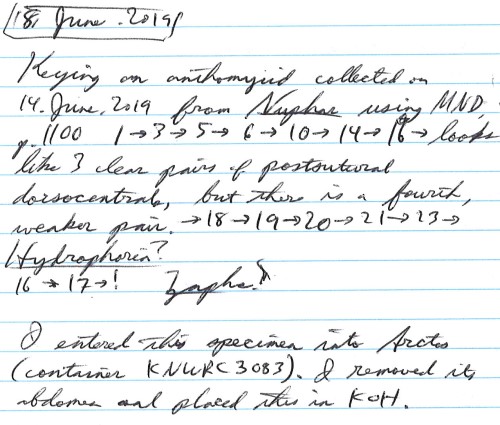 18. June. 2019
Keying an anthomyiid collected on
14. June, 2019 from Nuphar using MND,
p. 1100 1→3→5→6→10→14→16→ looks
like 3 clear pairs of postsutural
dorsocentrals, but there is a fourth,
weaker pair. →18→19→20→21→23→
Hydrophoria?
16→17→! Zapha.
I entered this specimen into Arctos
(container KNWRC3083). I removed its
abdomen and placed this in KOH.